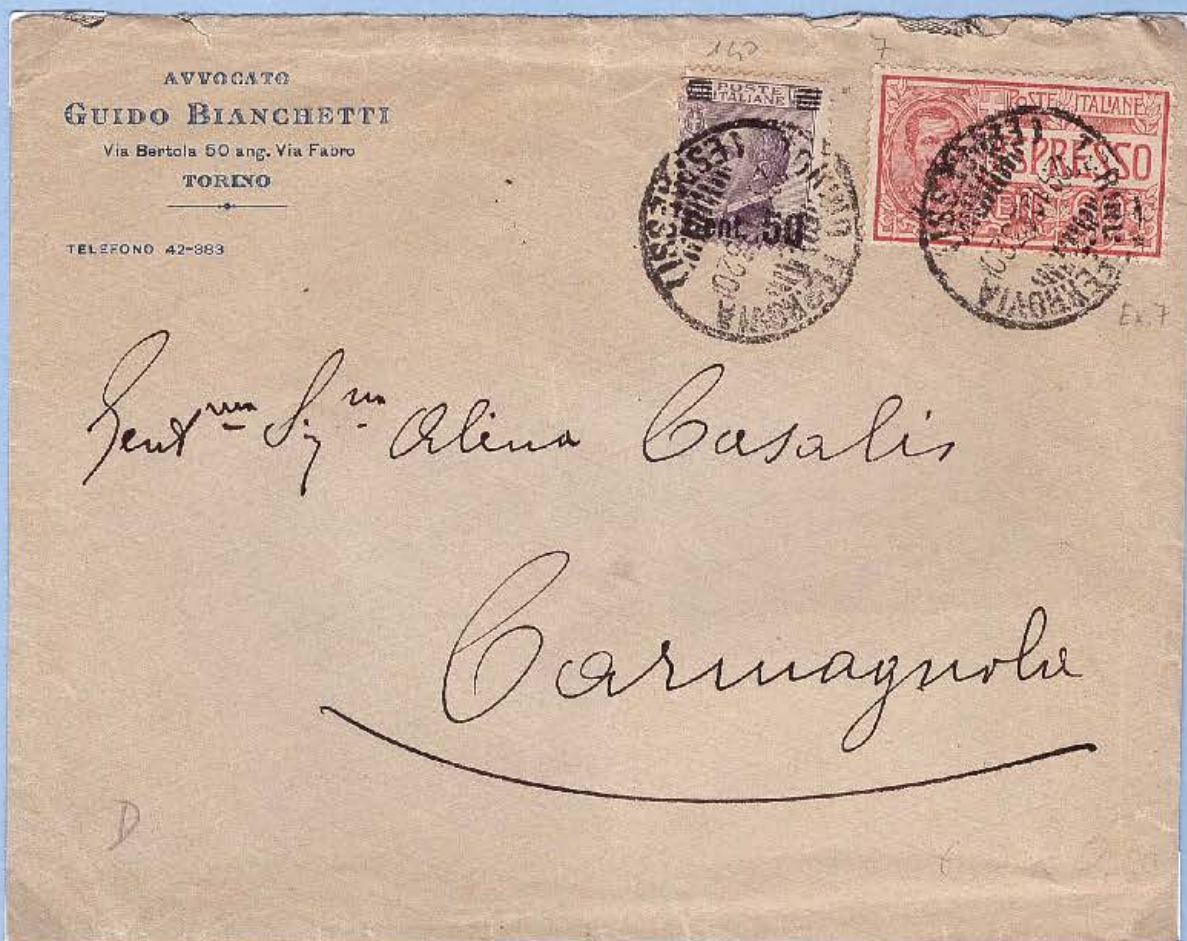 AVVOCATO
GUIDO BIANCHETTI
Via Bertola 50 ang. Via Fabro
TORINO
TELEFONO 42-883
140
7
POSTE
ITALIANE
Cent. 50
TORINO FERROVIA
(ESPRESSI)
POSTE ITALIANE
ESPRESSO
TORINO FERROVIA
(ESPRESSI)
Ex. 7
Gent.ma Sig.na Alina Casalis
Carmagnola
D